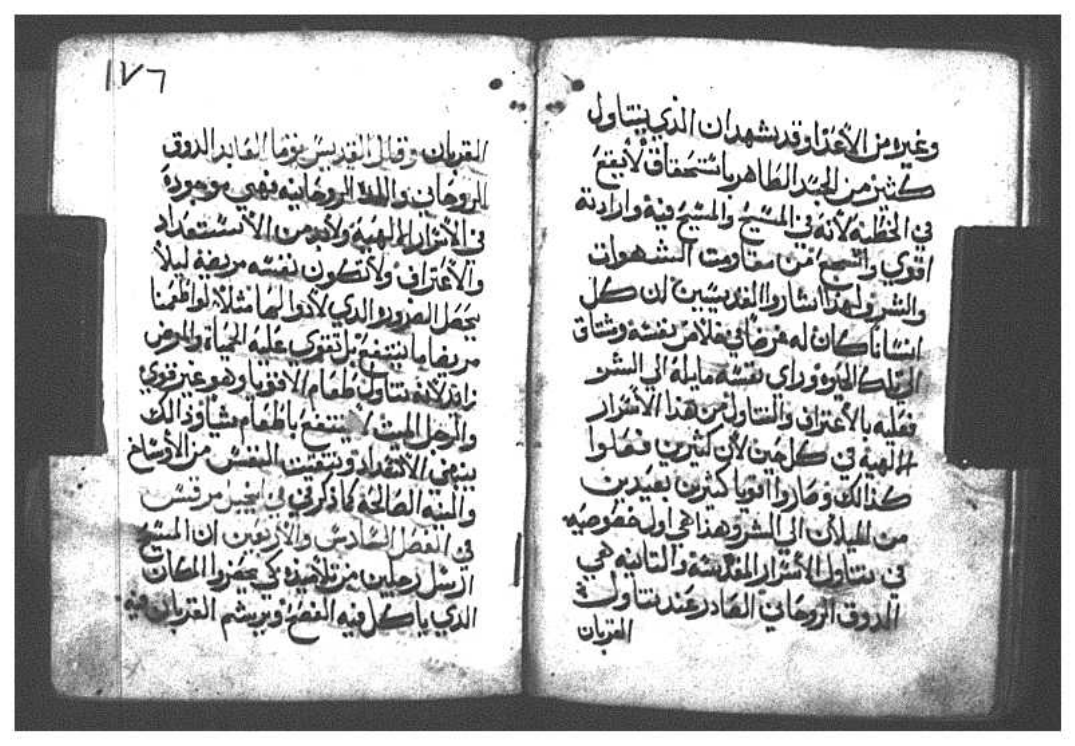 وغيره من الأعدا وقد يشهد ان الذي يتناول
كثير من الجسد الطاهر باستحقاق لا يقع
في الخطيه لانه في المسيح والمسيح فيه وارادته
اقوي واشجع من مقاومت الشهوات
والشر ولهدا اشاروا القديسين ان كل
انسانا كان له غرضا في خلاص نفسه وشتاق
الي تلك الحيوه وراي نفسه مايله الي الشر
فعليه بالاعتراف والتناول من هذا الاسرار
الالهية في كل حين لأن كثيرين فعلوا
كذالك وصاروا اقويا كثيرين بعيدين
من الميلان الي الشر وهذا هي اول خصوصيه
في تناول الأسرار المقدسة والتانيه هي
الدوق الروحاني الصادر عند تناول
القربان
١٧٦
القربان وقال القديس العابر الدوق
الروحاني واللدة الروحانيه فهي موجودة
في الأسرار الالهية ولابد من الأستعداد
والأعتراف ولا تكون نفسه مريضة ليلاً
يحصل الضرور والدي لا دوا لها مثلا لو اطعمنا
مريضا ما ينتفع بل تقوي عليه الحياة والمرض
زايد لانه تناول طعام الاقويا وهو غير قوي
والرجل الميت لا ينتفع باطعام مشا وذالك
ينبغي الاستعداد وتنقيت النفس من الأوساخ
والنيه الصالحة كما ذكر في في انجيل مرقس
في الفصل السادس والاربعين ان المسيح
ارسل رجلين من تلاميذه كي يحضروا المكان
الدي ياكل فيه الفصح ويرشم القربان فيه